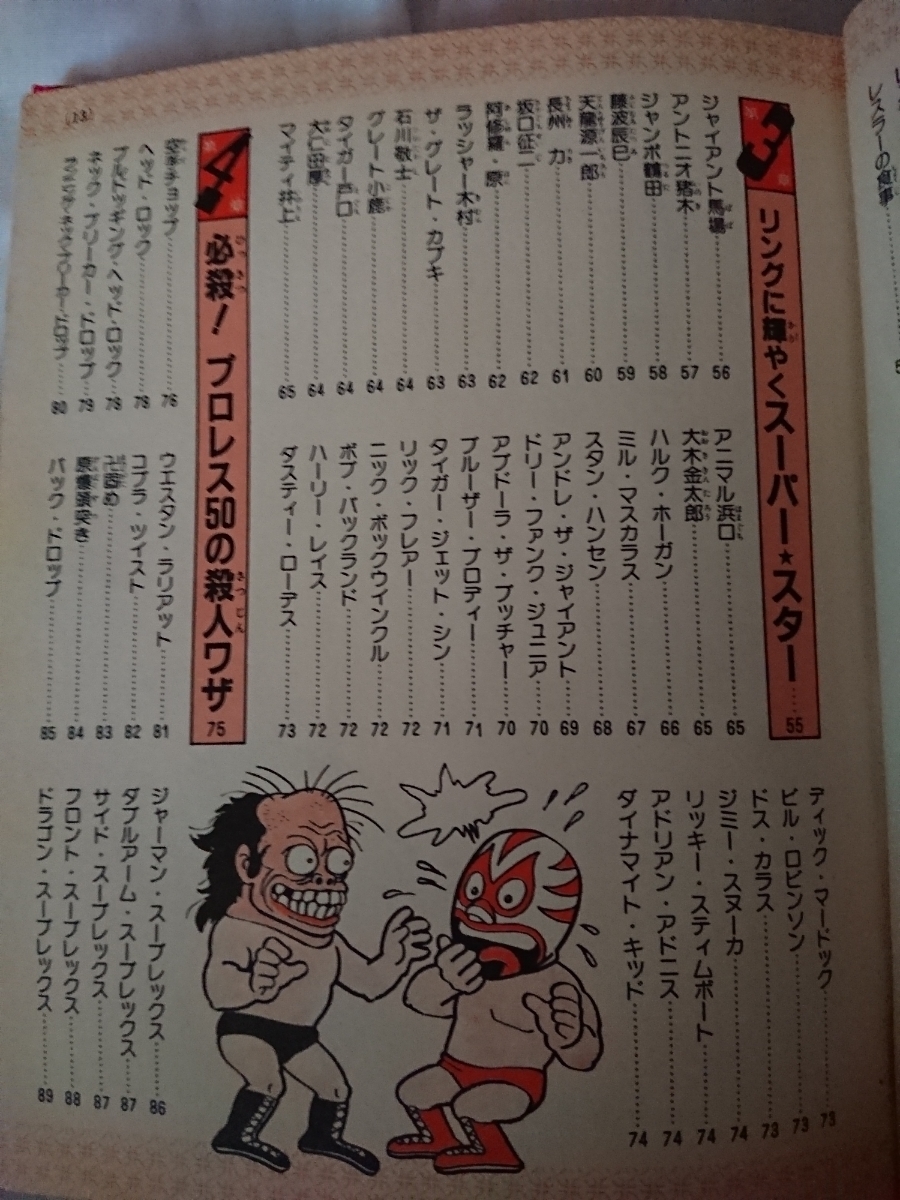 第3章 リングに輝やくスーパー★スター……55
ジャイアント馬場……56
アントニオ猪木……57
ジャンボ鶴田……58
藤波辰巳……59
天龍源一郎……60
長州 力……61
坂口征二……62
阿修羅・原……62
ラッシャー木村……63
ザ・グレート・カブキ……63
石川敬士……64
グレート小鹿……64
タイガー戸口……64
大仁田厚……64
マイティ井上……65
アニマル浜口……65
大木金太郎……65
ハルク・ホーガン……66
ミル・マスカラス……67
スタン・ハンセン……68
アンドレ・ザ・ジャイアント……69
ドリー・ファンク・ジュニア……70
アブドーラ・ザ・ブッチャー……70
ブルーザー・ブロディー……71
タイガー・ジェット・シン……71
リック・フレアー……72
ニック・ボックウインクル……72
ボブ・バックランド……72
ハーリー・レイス……72
ダスティー・ローデス……73
ディック・マードック……73
ビル・ロビンソン……73
ドス・カラス……73
ジミー・スヌーカ……74
リッキー・スティムボート……74
アドリアン・アドニス……74
ダイナマイト・キッド……74
第4章 必殺! プロレス50の殺人ワザ 75
空手チョップ……76
ヘッド・ロック……78
ブルドッキング・ヘッド・ロック……78
ネック・ブリーカー・ドロップ……79
……80
ウエスタン・ラリアット……81
コブラ・ツイスト……82
卍固め……83
原爆頭突き……84
バック・ドロップ……85
ジャーマン・スープレックス……86
ダブルアーム・スープレックス……87
サイド・スープレックス……87
フロント・スープレックス……88
ドラゴン・スープレックス……89
(13)
レスラーの食事